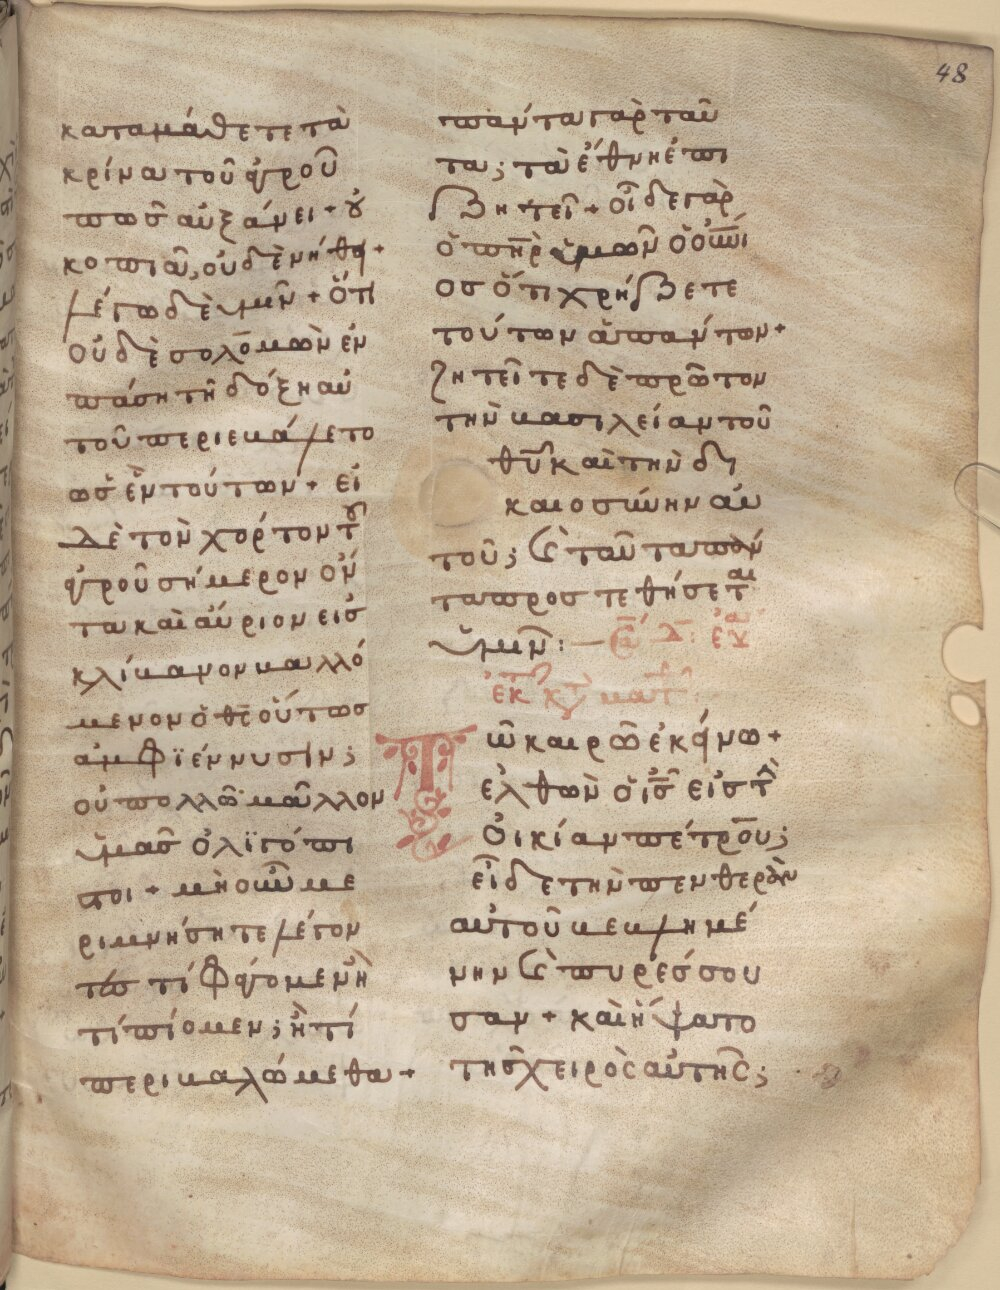 48
καταμάθετε τὰ
κρίνα τοῦ ἀγροῦ
πῶς αὐξάνει + ȣ̓
κοπιᾶ, οὐδὲ νήθει +
λέγω δὲ ὑμῖν + ὅτι
οὐδὲ σολομὼν ἐν
πάση τῆ δόξη αὐ
τοῦ περιεβάλετο
ὡς ἓν τούτων + εἰ
δὲ τὸν χόρτον τȣ
ἀγροῦ σήμερον ὄν
τα καὶ αὔριον εἰς
κλίβανον βαλλό
μενον ὁ θς̅ οὕτως
ἀμφϊέννυσιν;
οὐ πολλῶ μᾶλλον
ὑμᾶς ὀλϊγόπι
στοι + μὴ οὖν με
ριμνήσητε λέγον
τες τί φάγομεν ἢ
τί πίομεν; ἢ τί
περιβαλώμεθα +
πάντα γὰρ ταῦ
τα; τὰ ἔθνη ἐπι
ζητεῖ + οἶδε γὰρ
ὁ πη̅ρ ὑμῶν ὁ οὐνι
ος ὅτι χρήζετε
τούτων ἁπάντων +
ζητεῖτε δὲ πρῶτον
τὴν βασιλείαν τοῦ
θυ̅ καὶ τὴν δι
καιοσύνην αὐ
τοῦ; καὶ ταῦτα πάν
τα προστεθήσεται
ὑμῖν: —
ἐκ τοῦ κατὰ ματθ
Τῶ καιρῶ ἐκείνω +
ἐλθὼν ὁ ις̅ εἰς τὴν
οἰκίαν πέτρου;
εἶδε τὴν πενθερὰν
αὐτοῦ βεβλημέ
νην καὶ πυρέσσου
σαν + καὶ ἥψατο
τῆς χειρὸς αὐτῆς;